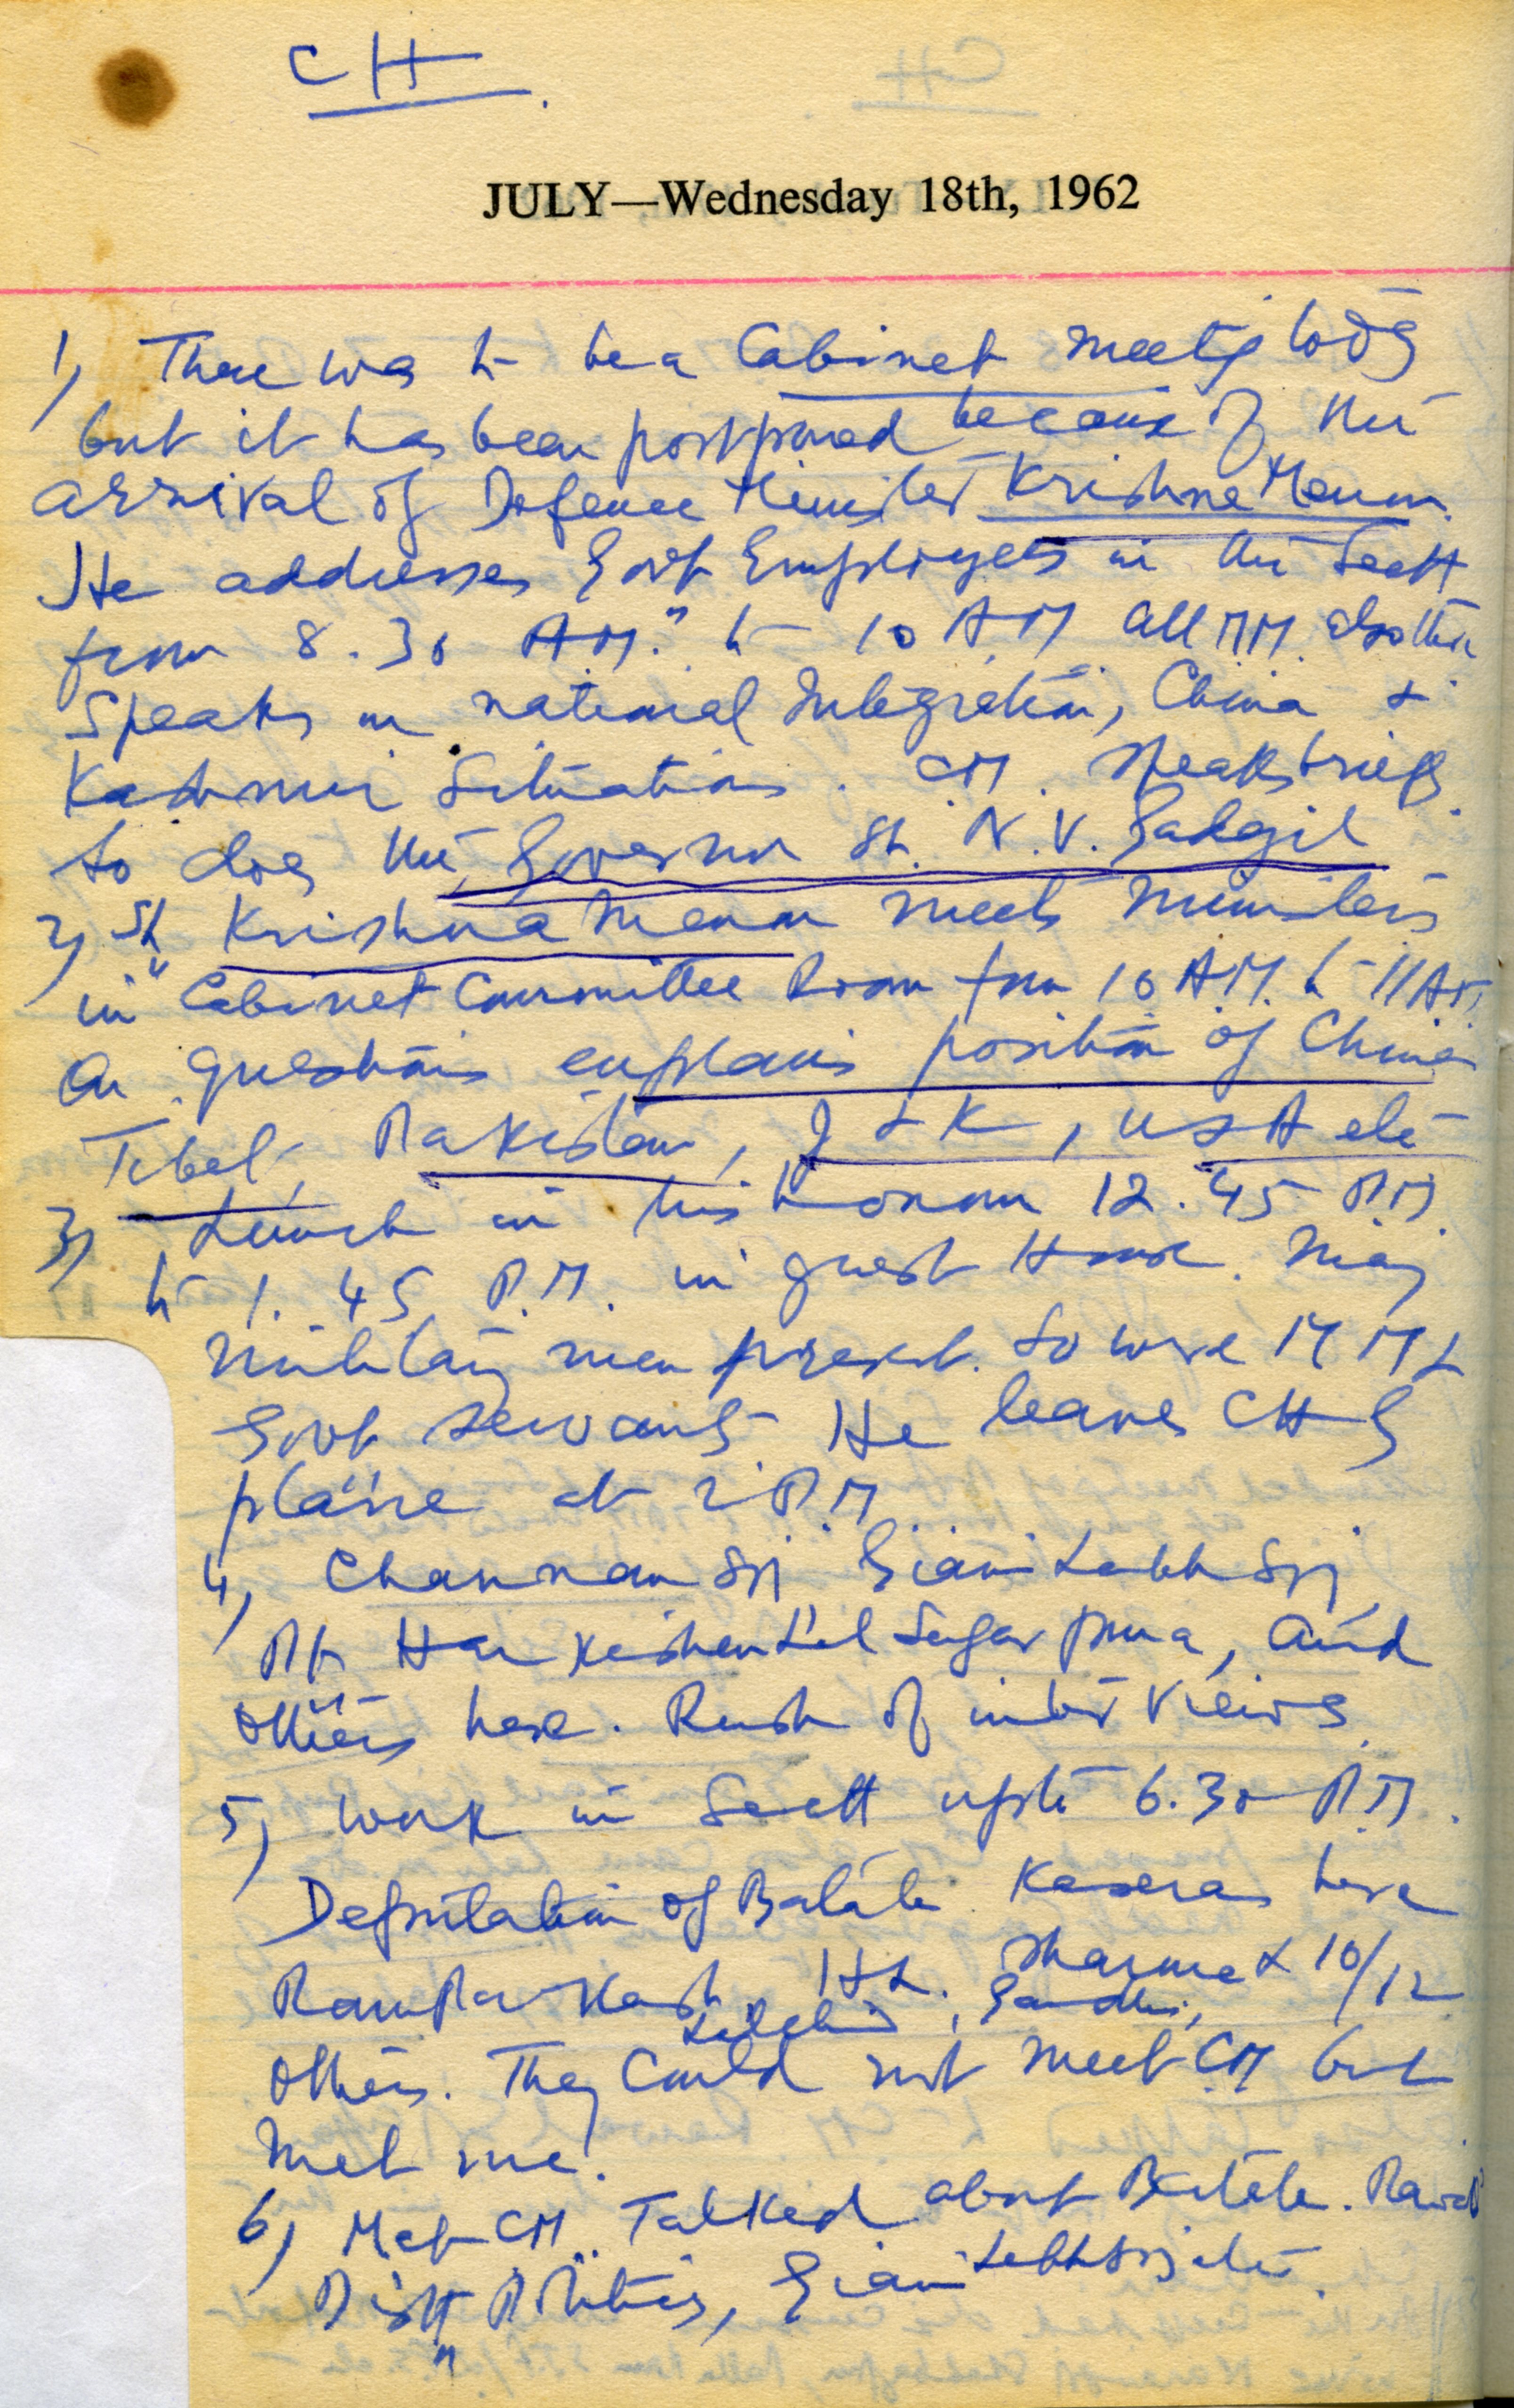 CH
JULY—Wednesday 18th, 1962
1) There was to be a Cabinet meeting today
but it has been postponed because of the
arrival of Defence Minister Krishna Menon.
He addresses Govt Employees in the Sectt
from 8.30 A.M. to 10 AM All MM. also there
Speaks on national Integration, China &
Kashmir Situations. CM. speaks briefly.
So does the Governor Sh. N.V. Gadgil
2) Sh Krishna Menon meets Ministers
in Cabinet Committee Room from 10 A.M. to 11 AM
On questions explains position of China
Tibet, Pakistan, J & K, USA etc
3) Lunch in his honour 12.45 P.M.
to 1.45 P.M. in guest House. Many
military men present. So were MM &
Govt servants He leaves CH by
plane at 2 P.M.
4) Channan Singh, Giani Labh Singh
Pt Har Kishan Lal Sugar, and
others here. Rush of interviews.
5) Work in Sectt upto 6.30 P.M.
Deputation of Batala here
Ram Parkash H.L. Sharma & 10/12
Gandhi,
others. They Could not meet CM but
Met me.
6) Met CM. Talked about Batala.
Distt Politics, Giani Labh Singh etc.